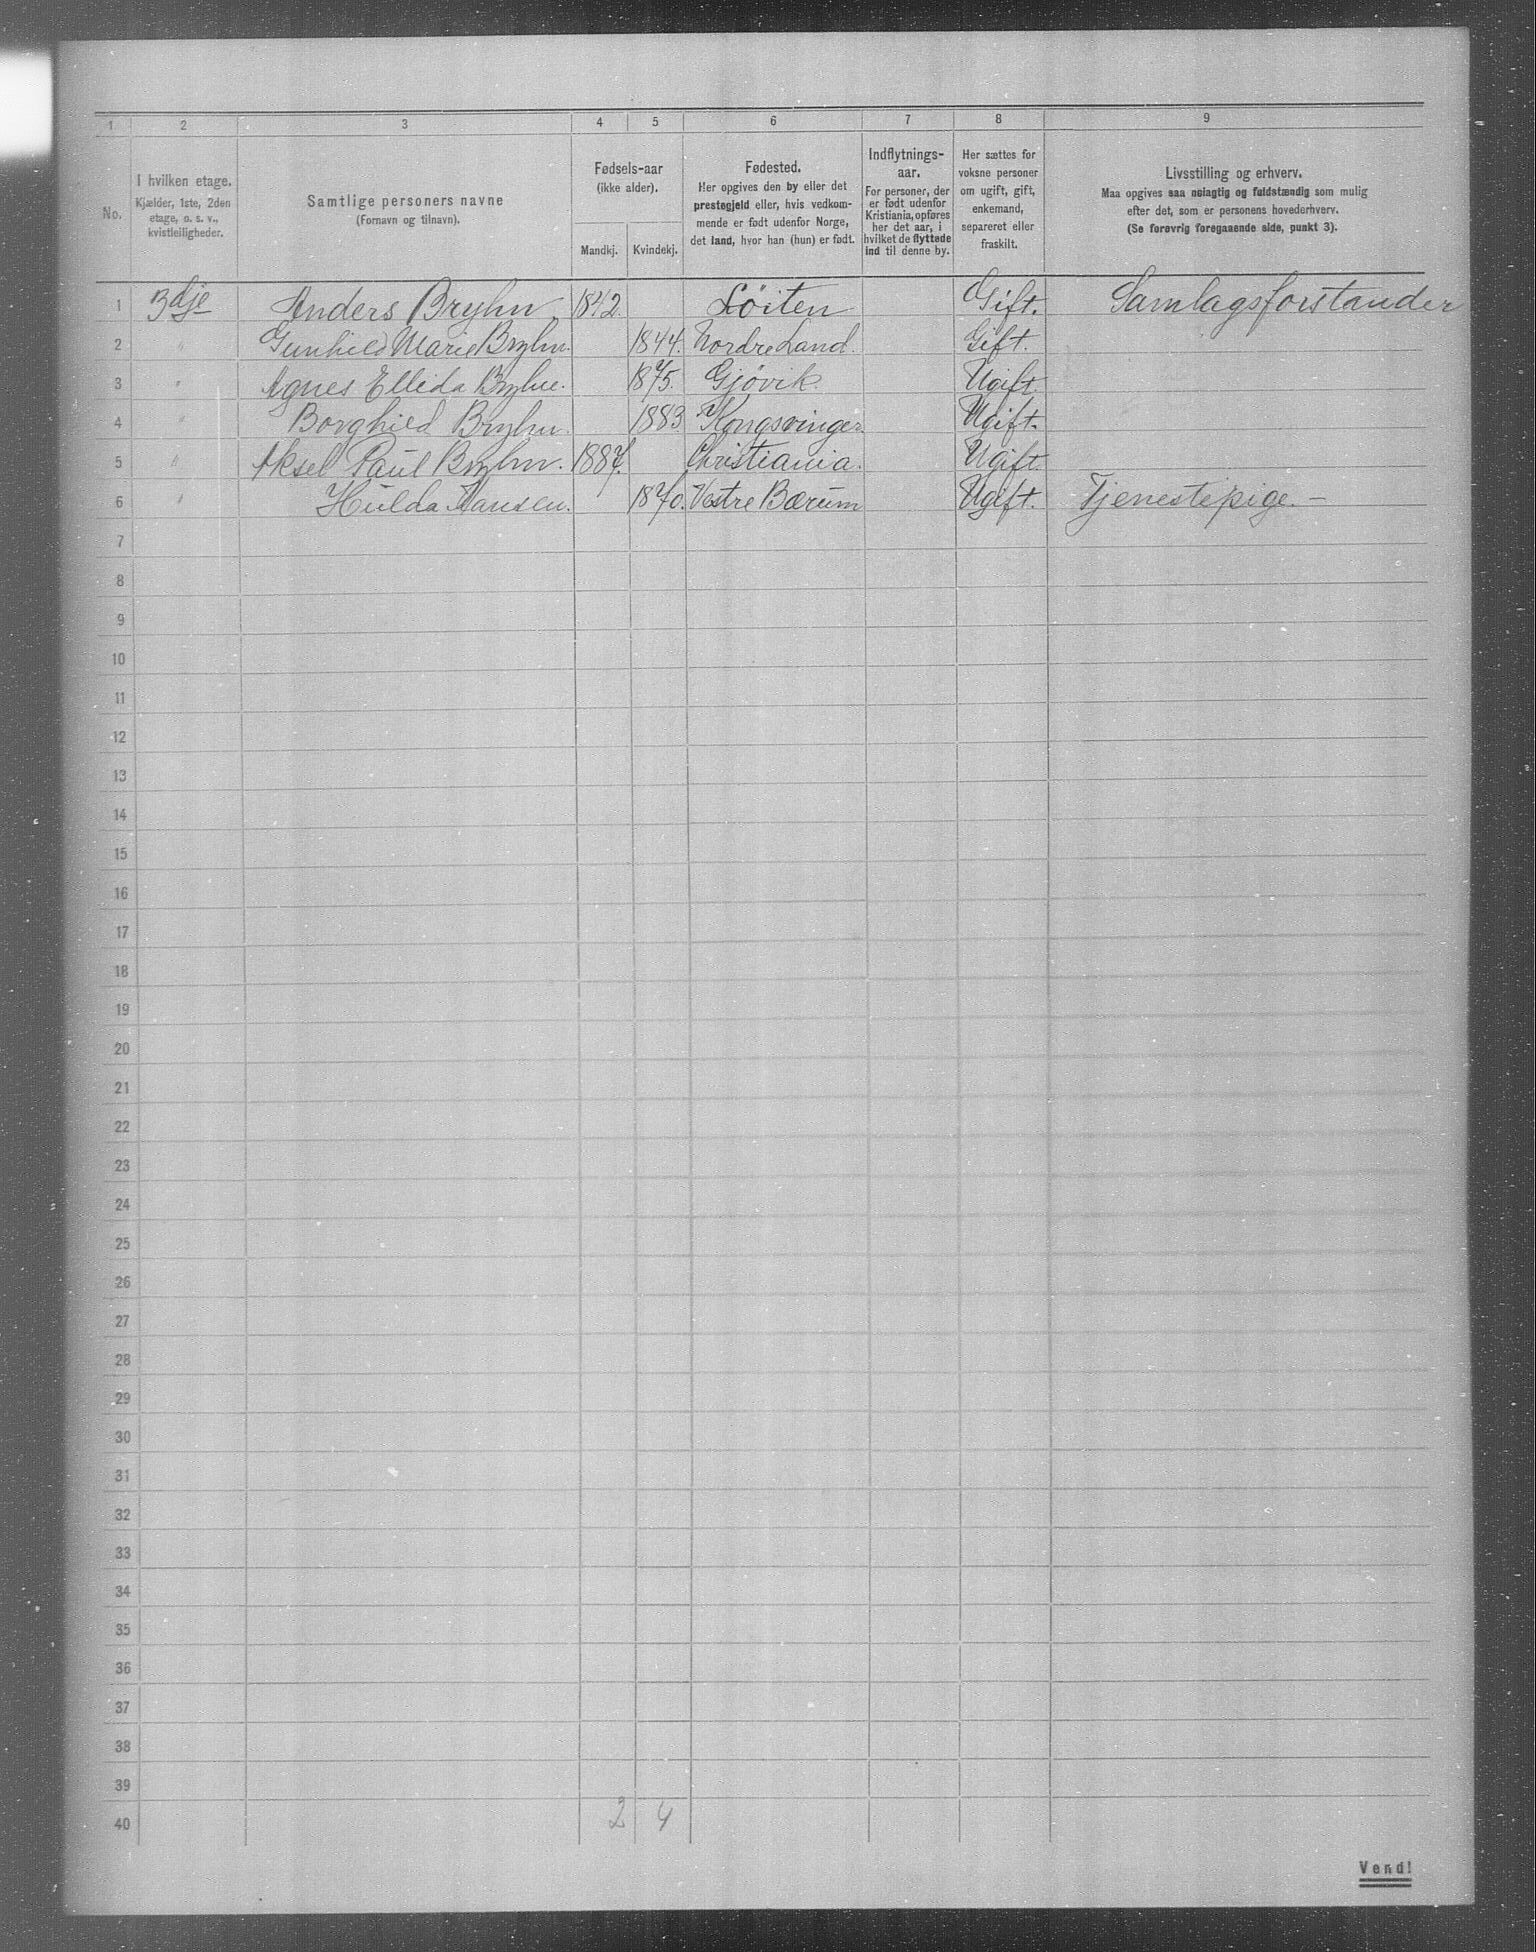 1 2 3 4 5 6 7 8 9
No.
I hvilken etage.
Kjælder, 1ste, 2den
etage, o. s. v.,
kvistleiligheder.
Samtlige personers navne
(Fornavn og tilnavn).
Fødsels-aar
(ikke alder).
Mandkj. Kvindekj.
Fødested.
Her opgives den by eller det
prestegjeld eller, hvis vedkom-
mende er født udenfor Norge,
det land, hvor han (hun) er født.
Indflytnings-
aar.
For personer, der
er født udenfor
Kristiania, opføres
her det aar, i
hvilket de flyttede
ind til denne by.
Her sættes for
voksne personer
om ugift, gift,
enkemand,
separeret eller
fraskilt.
Livsstilling og erhverv.
Maa opgives saa nøiagtig og fuldstændig som mulig
efter det, som er personens hovederhverv.
(Se forøvrig foregaaende side, punkt 3).
1 3dje Anders Bryhn 1842. Löiten Gift. Samlagsforstander
2 " Gunhild Marie Bryhn. 1844. Nordre Land. Gift.
3 " Agnes Ellida Bryhn. 1875. Gjövik. Ugift.
4 " Borghild Bryhn. 1883 Kongsvinger. Ugift.
5 " Aksel Paul Bryhn. 1887. Christiania. Ugift.
6 " Hulda Hansen. 1870. Vestre Bærum Ugift. Tjenestepige. —
7
8
9
10
11
12
13
14
15
16
17
18
19
20
21
22
23
24
25
26
27
28
29
30
31
32
33
34
35
36
37
38
39
40 2 4
Vend!